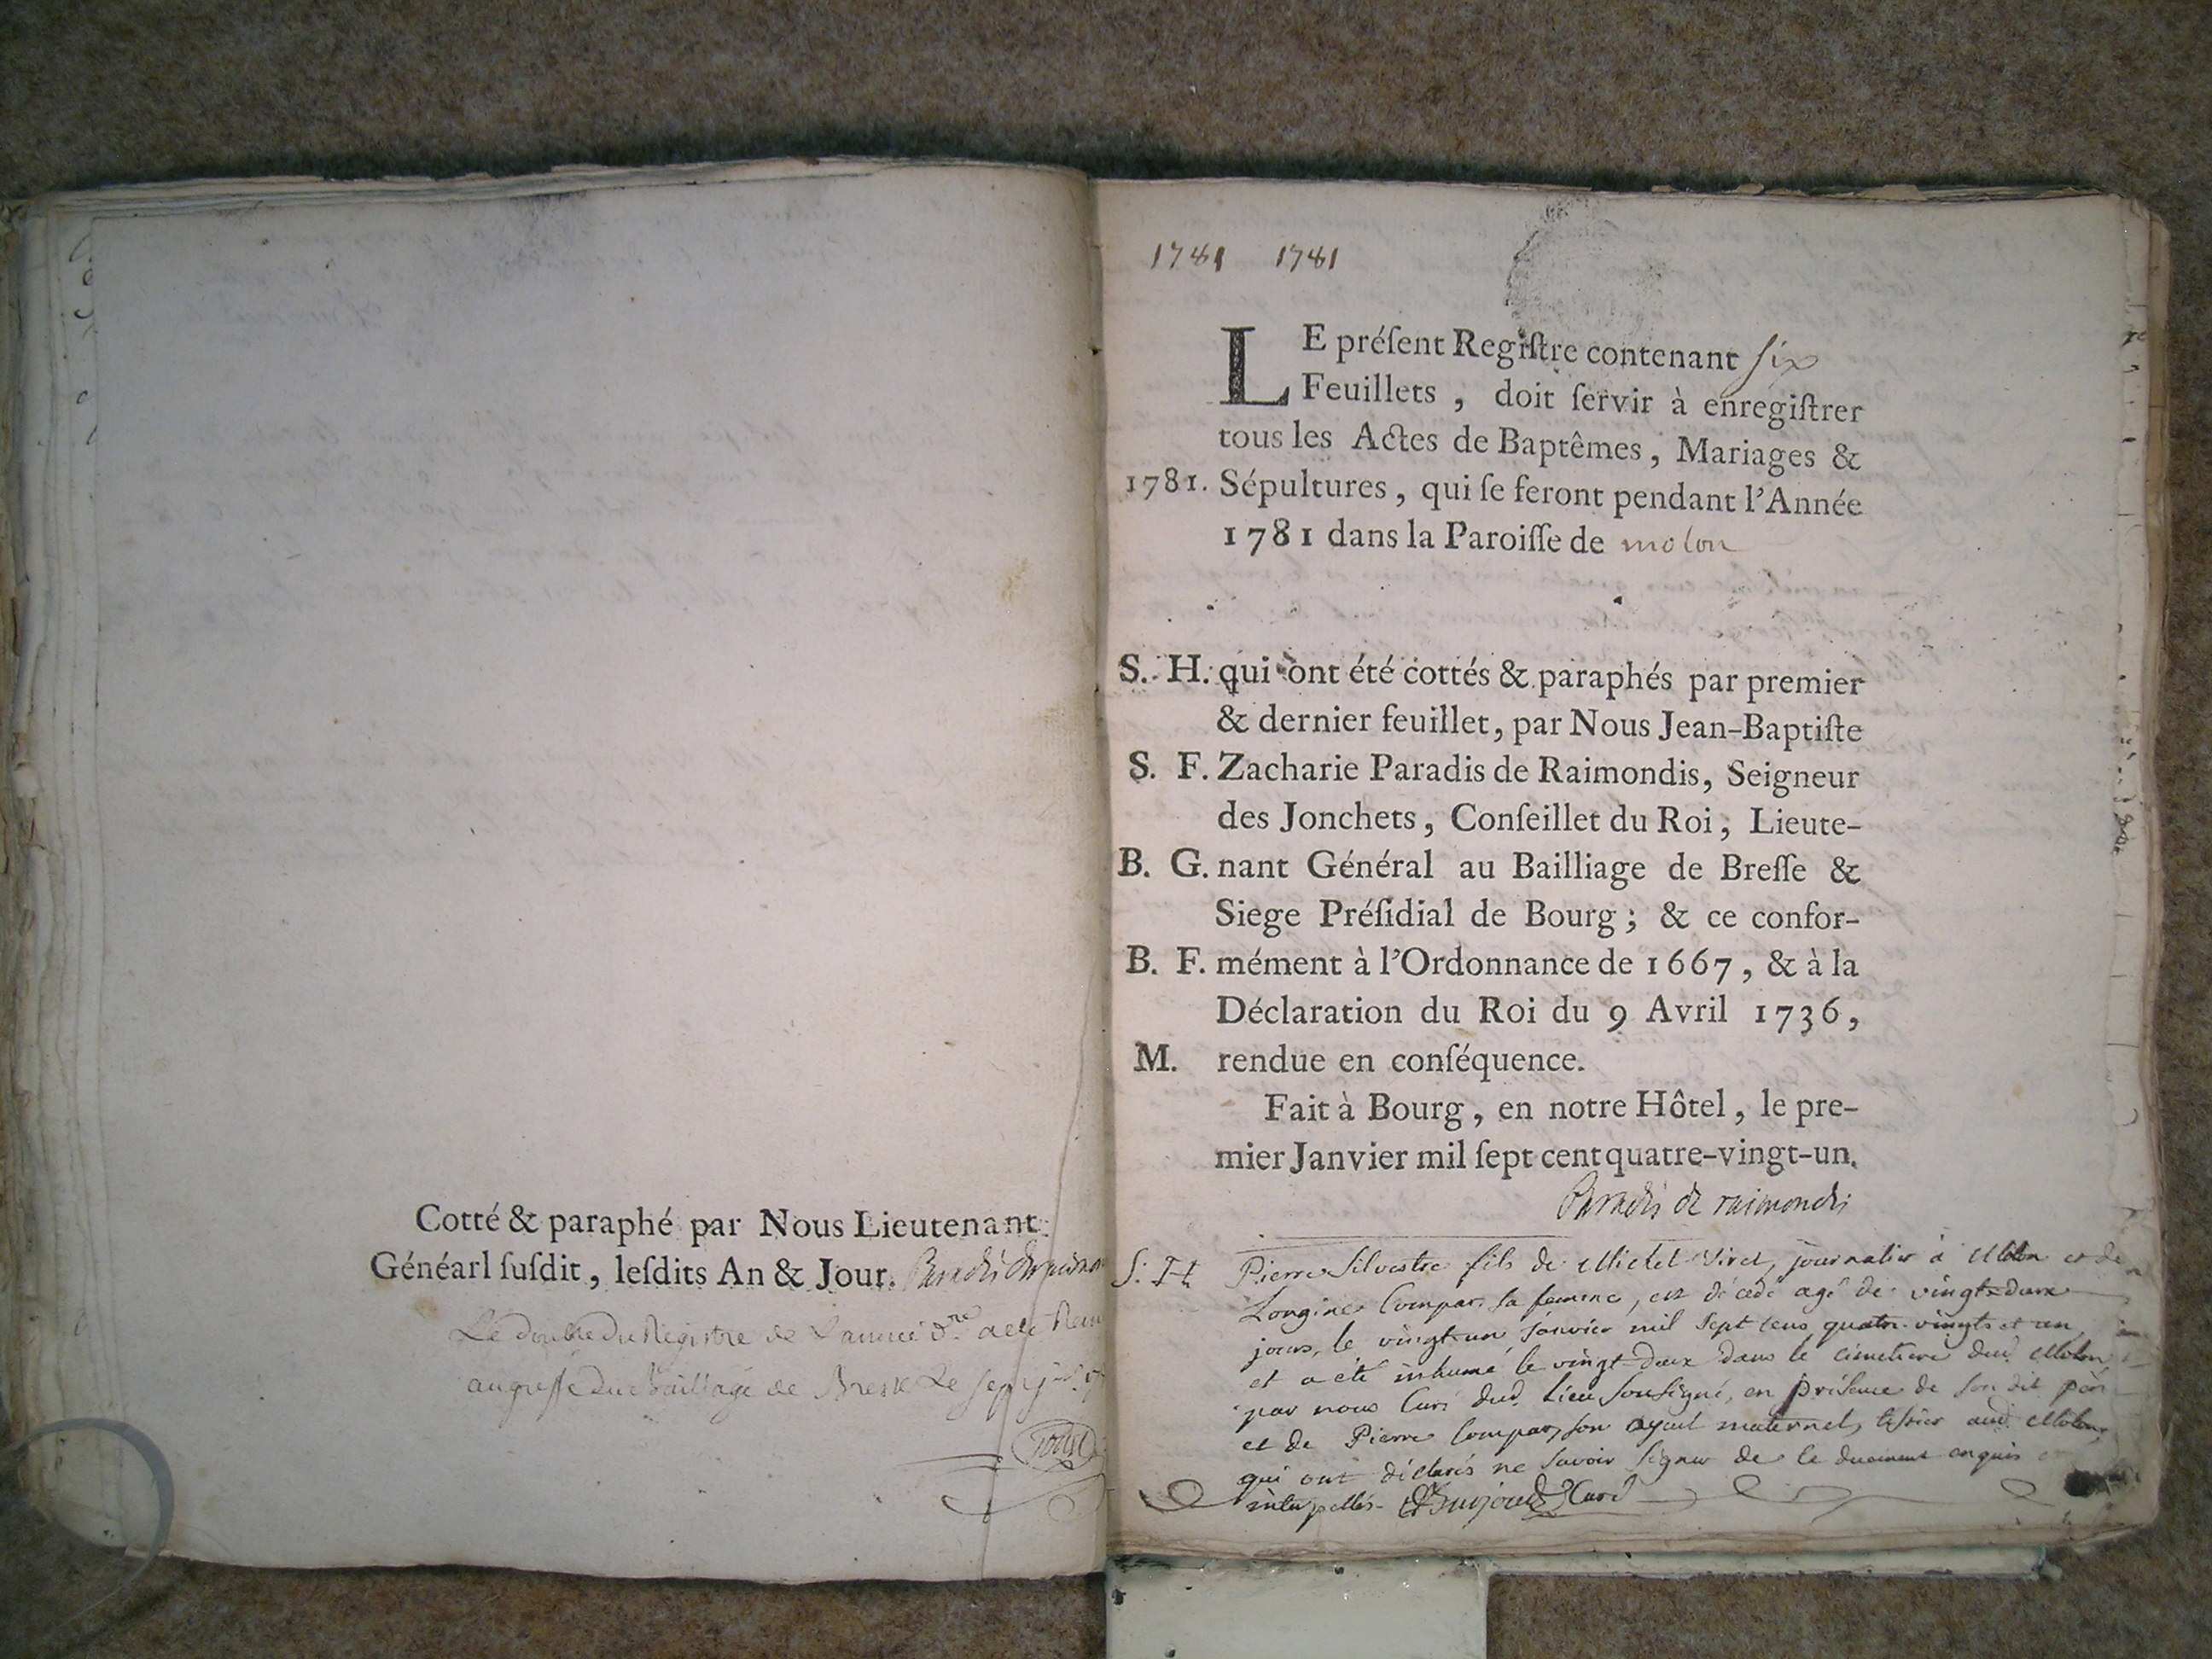 Cotté & paraphé par Nous Lieutenant
Généarl ſuſdit, leſdits An & Jour. Paradis de raimon
Le double du Registre de l'année d.re a été
au greffe du Bailliage de Bresse Le sept
1781 1781
LE préſent Regiſtre contenant six
Feuillets, doit ſervir à enregiſtrer
tous les Actes de Baptêmes, Mariages &
1781. Sépultures, qui ſe feront pendant l'Année
1781 dans la Paroiſſe de molon
S. H. qui ont été cottés & paraphés par premier
& dernier feuillet, par Nous Jean-Baptiſte
S. F. Zacharie Paradis de Raimondis, Seigneur
des Jonchets, Conſeillet du Roi, Lieute-
B. G. nant Général au Bailliage de Breſſe &
Siege Préſidial de Bourg; & ce confor-
B. F. mément à l'Ordonnance de 1667, & à la
Déclaration du Roi du 9 Avril 1736,
M. rendue en conſéquence.
Fait à Bourg, en notre Hôtel, le pre-
mier Janvier mil ſept cent quatre-vingt-un.
Paradis de raimondis
S. H. Pierre Silvestre fils de Michel Viret, journalier à Molon et de
Longine Compar sa femme, est décédé agé de vingt-deux
jours, le vingt-un janvier mil sept cens quatre-vingts et un
et a été inhumé le vingt-deux dans le cimetiere dud. Molon
par nous Curé dud. Lieu Soussigné, en présence de son dit père
et de Pierre Compar, son ayeul maternel, tissier aud. Molon,
qui ont déclarés ne savoir signer de ce duement enquis
interpellés. Curé